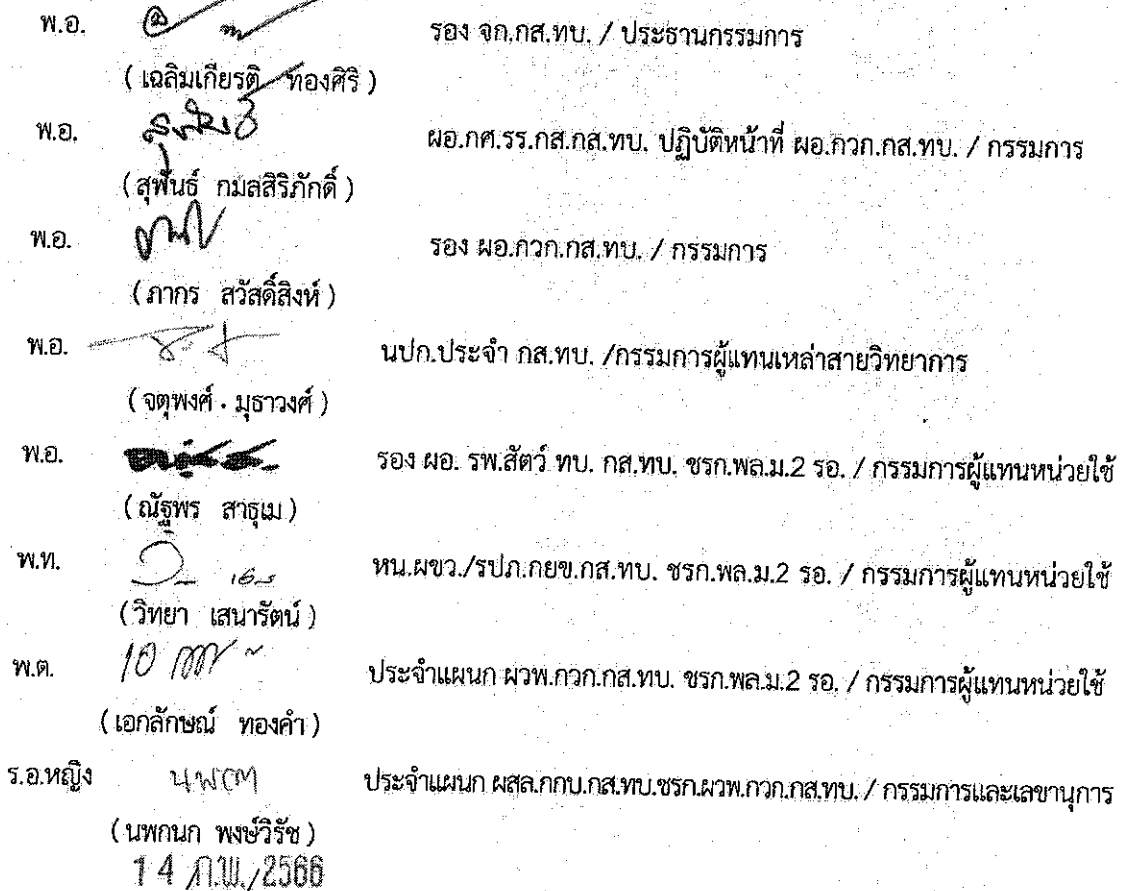 พ.อ. รอง จก.กส.ทบ. / ประธานกรรมการ
( เฉลิมเกียรติ ทองศิริ )
พ.อ. ผอ.กศ.รร.กส.กส.ทบ. ปฏิบัติหน้าที่ ผอ.กวก.กส.ทบ. / กรรมการ
( สุพันธ์ กมลสิริภักดิ์ )
พ.อ. รอง ผอ.กวก.กส.ทบ. / กรรมการ
( ภากร สวัสดิ์สิงห์ )
พ.อ. นปก.ประจำ กส.ทบ. /กรรมการผู้แทนเหล่าสายวิทยาการ
( จตุพงศ์ มุธาวงศ์ )
พ.อ. รอง ผอ. รพ.สัตว์ ทบ. กส.ทบ. ชรก.พล.ม.2 รอ. / กรรมการผู้แทนหน่วยใช้
( ณัฐพร สาธุเม )
พ.ท. หน.ผขว./รปภ.กยข.กส.ทบ. ชรก.พล.ม.2 รอ. / กรรมการผู้แทนหน่วยใช้
( วิทยา เสนารัตน์ )
พ.ต. ประจำแผนก ผวพ.กวก.กส.ทบ. ชรก.พล.ม.2 รอ. / กรรมการผู้แทนหน่วยใช้
( เอกลักษณ์ ทองคำ )
ร.อ.หญิง นพกน ประจำแผนก ผสล.กกบ.กส.ทบ.ชรก.ผวพ.กวก.กส.ทบ. / กรรมการและเลขานุการ
( นพกนก พงษ์วิรัช )
14 ก.พ. 2566